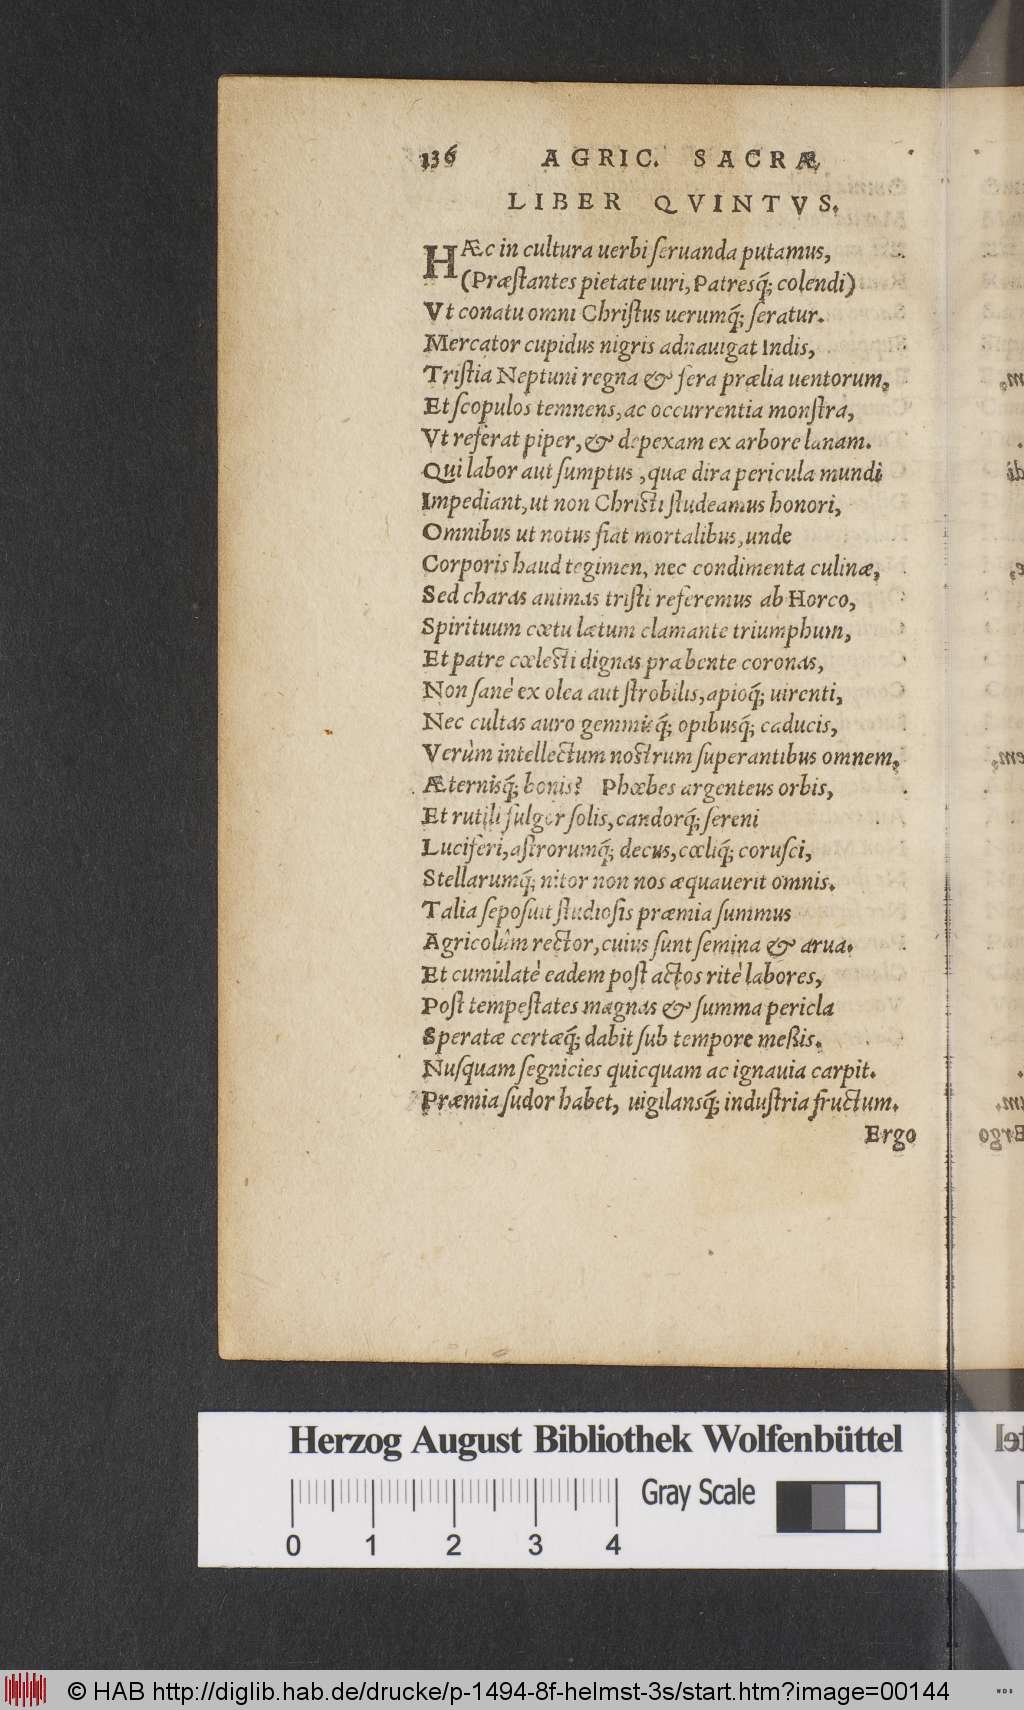 136 AGRIC. SACRÆ
LIBER QVINTVS.
HÆc in cultura uerbi ſeruanda putamus,
(Præſtantes pietate uiri, Patresq́; colendi)
Vt conatu omni Chriſtus uerumq́; ſeratur.
Mercator cupidus nigris adnauigat Indis,
Triſtia Neptuni regna & fera prælia uentorum,
Et ſcopulos temnens, ac occurrentia monſtra,
Vt referat piper, & depexam ex arbore lanam.
Qui labor aut ſumptus, quæ dira pericula mundi
Impediant, ut non Chriſti ſtudeamus honori,
Omnibus ut notus fiat mortalibus, unde
Corporis haud tegimen, nec condimenta culinæ,
Sed charas animas triſti referemus ab Horco,
Spirituum cœtu lætum clamante triumphum,
Et patre cœleſti dignas præbente coronas,
Non ſanè ex olea aut ſtrobilis, apioq́; uirenti,
Nec cultas auro gemmisq́; opibusq́; caducis,
Verùm intellectum noſtrum ſuperantibus omnem,
Æternisq́; bonis? Phœbes argenteus orbis,
Et rutili fulgor ſolis, candorq́; ſereni
Luciferi, aſtrorumq́; decus, cœliq́; coruſci,
Stellarumq́; nitor non nos æquauerit omnis.
Talia ſepoſuit ſtudioſis præmia ſummus
Agricolûm rector, cuius ſunt ſemina & arua.
Et cumulatè eadem poſt actos ritè labores,
Poſt tempeſtates magnas & ſumma pericla
Speratæ certæq́; dabit ſub tempore meßis.
Nuſquam ſegnicies quicquam ac ignauia carpit.
Præmia ſudor habet, uigilansq́; induſtria fructum.
Ergo
Herzog August Bibliothek Wolfenbüttel
Gray Scale
0 1 2 3 4
© HAB http://diglib.hab.de/drucke/p-1494-8f-helmst-3s/start.htm?image=00144